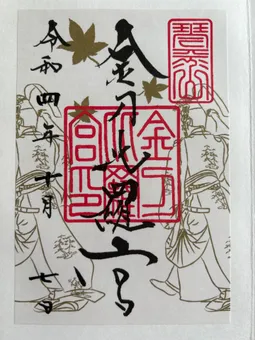 琴平山
金刀比羅宮
金刀
比羅
宮印
令和四年十月七日